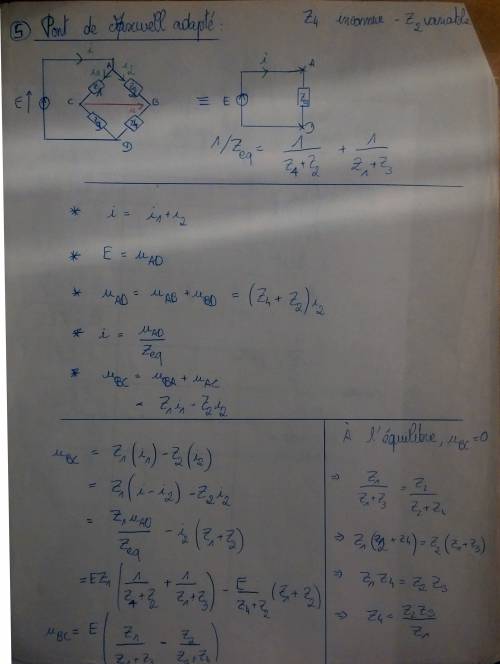 ⑤ Pont de Maxwell adapté : Z4 inconnue - Z2 variable
i
A
i1 i2
Z1 Z2
E C u B
Z3 Z4
D
≡
i A
E Zeq
D
1/Zeq = 1/(Z4+Z2) + 1/(Z1+Z3)
* i = i1 + i2
* E = uAD
* uAD = uAB + uBD = (Z4 + Z2) i2
* i = uAD/Zeq
* uBC = uBA + uAC
= Z1 i1 - Z2 i2
uBC = Z1(i1) - Z2(i2)
= Z1(i - i2) - Z2 i2
= Z1 uAD/Zeq - i2(Z1 + Z2)
= E Z1 (1/(Z4+Z2) + 1/(Z1+Z3)) - E/(Z4+Z2) (Z1 + Z2)
uBC = E (Z1/(Z1+Z3) - Z2/(Z2+Z4))
À l'équilibre, uBC = 0
⇒ Z1/(Z1+Z3) = Z2/(Z2+Z4)
⇒ Z1(Z2 + Z4) = Z2(Z1 + Z3)
⇒ Z1 Z4 = Z2 Z3
⇒ Z4 = Z2 Z3/Z1